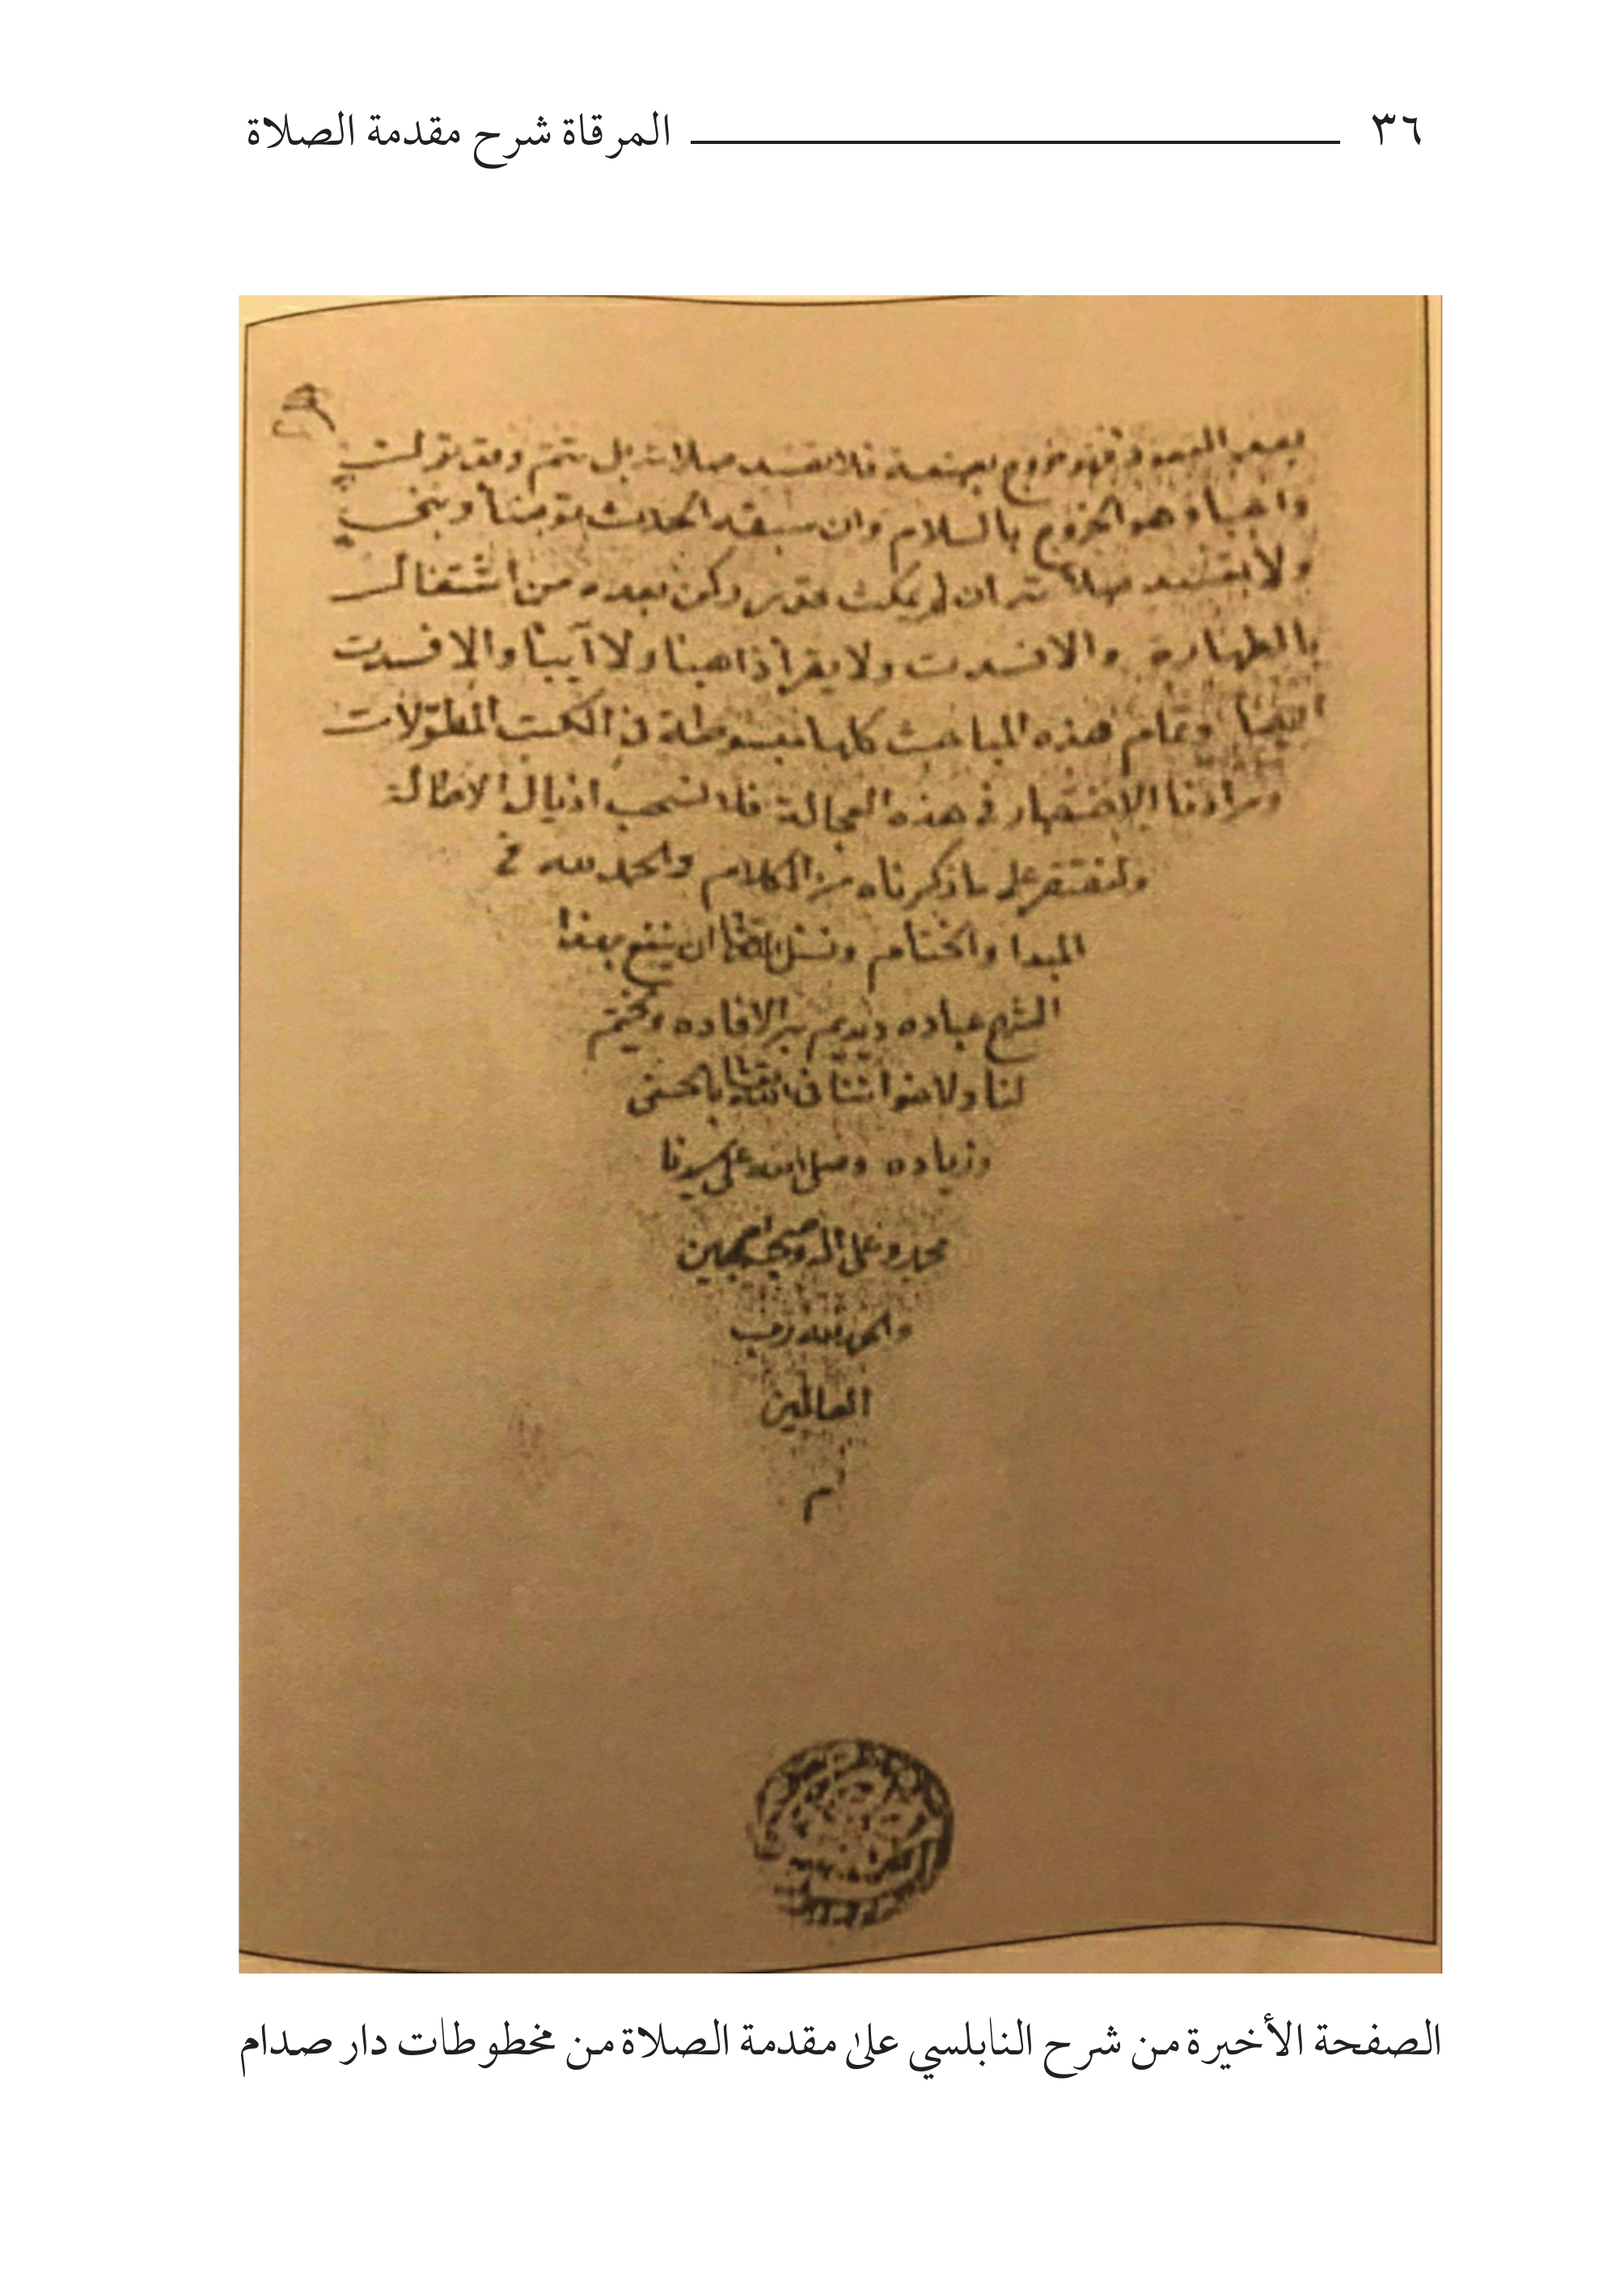 ٣٦ المرقاة شرح مقدمة الصلاة
بعد القعود فهو خروج بصنعه فلا تفسد صلاته بل تتم وقد ترك
واجبا وهو الخروج بالسلام وان سبقه الحدث توضأ وبنى
ولا تفسد صلاته ان لم يمكث قدر ركن بعده من اشتغال
بالطهارة والا فسدت ولا يقرأ ذاهبا ولا آيبا والا فسدت
ايضا وتمام هذه المباحث كلها مبسوطة في الكتب المطوّلات
ومرادنا الاختصار في هذه العجالة فلا نسحب اذيال الاطالة
ولنقتصر على ما ذكرناه من الكلام والحمد لله في
المبدا والختام ونسئل الله تعالى ان ينفع بهذا
الشرح عباده ويديم به الافاده ويختم
لنا ولاخواننا في الله تعالى بالحسنى
وزياده وصلى الله على سيدنا
محمد وعلى اله وصحبه اجمعين
والحمد لله رب
العالمين
م
الصفحة الأخيرة من شرح النابلسي على مقدمة الصلاة من مخطوطات دار صدام